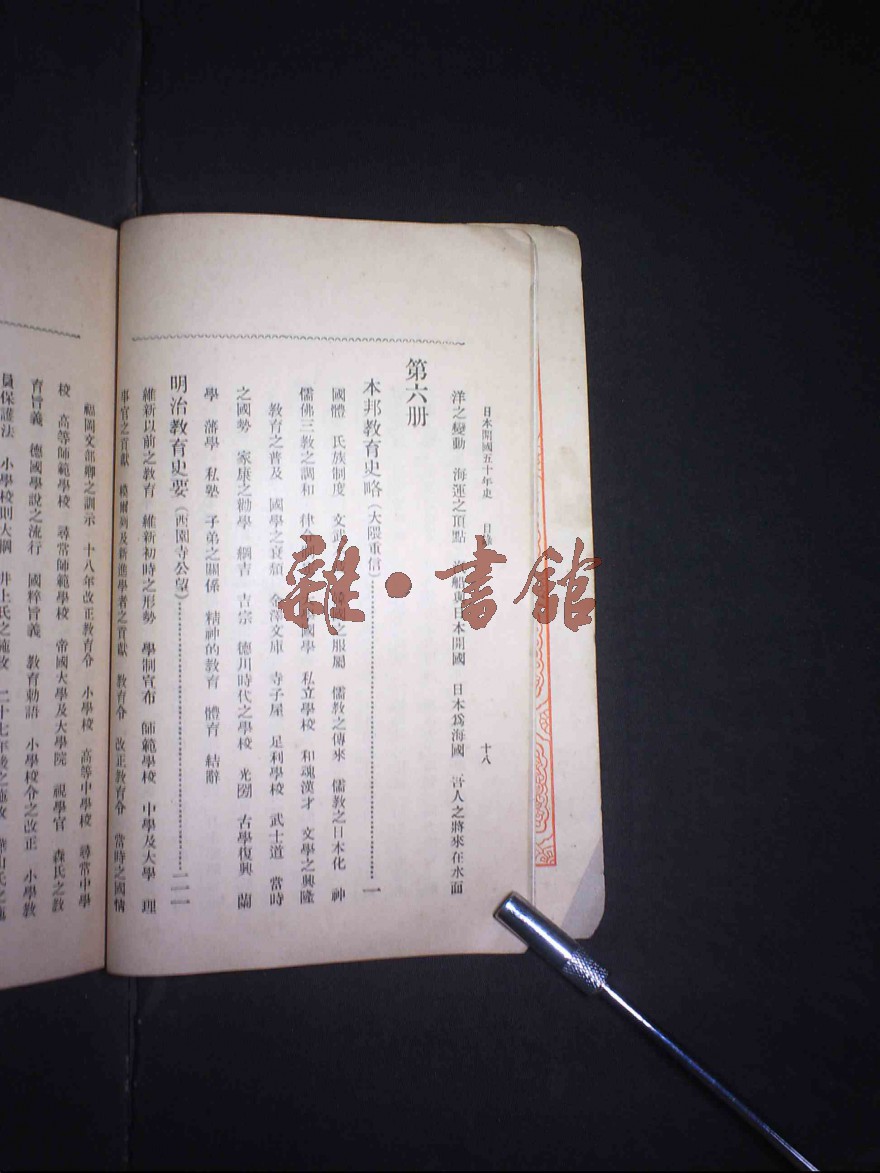 日本開國五十年史 目
十八
洋之變動 海運之頂點 與日本開國 日本爲海國 吾人之將來在水面
第六册
本邦教育史略(大隈重信) 一
國體 氏族制度 文 之服屬 儒教之傳來 儒教之日本化 神
儒佛三教之調和 律 國學 私立學校 和魂漢才 文學之興隆
教育之普及 國學之衰頹 金澤文庫 寺子屋 足利學校 武士道 當時
之國勢 家康之勸學 綱吉 吉宗 德川時代之學校 光圀 古學復興 蘭
學 藩學 私塾 子弟之關係 精神的教育 體育 結辭
明治教育史要(西園寺公望) 二一
維新以前之教育 維新初時之形勢 學制宣布 師範學校 中學及大學 理
事官之貢獻 及新進學者之貢獻 教育令 改正教育令 當時之國情
福岡文部卿之訓示 十八年改正教育令 小學校 高等中學校 尋常中學
校 高等師範學校 尋常師範學校 帝國大學及大學院 視學官 森氏之教
育旨義 德國學說之流行 國粹旨義 教育勅語 小學校令之改正 小學教
員保護法 小學校則大綱 井上氏之施政 二十七年後之施政
雜·書館